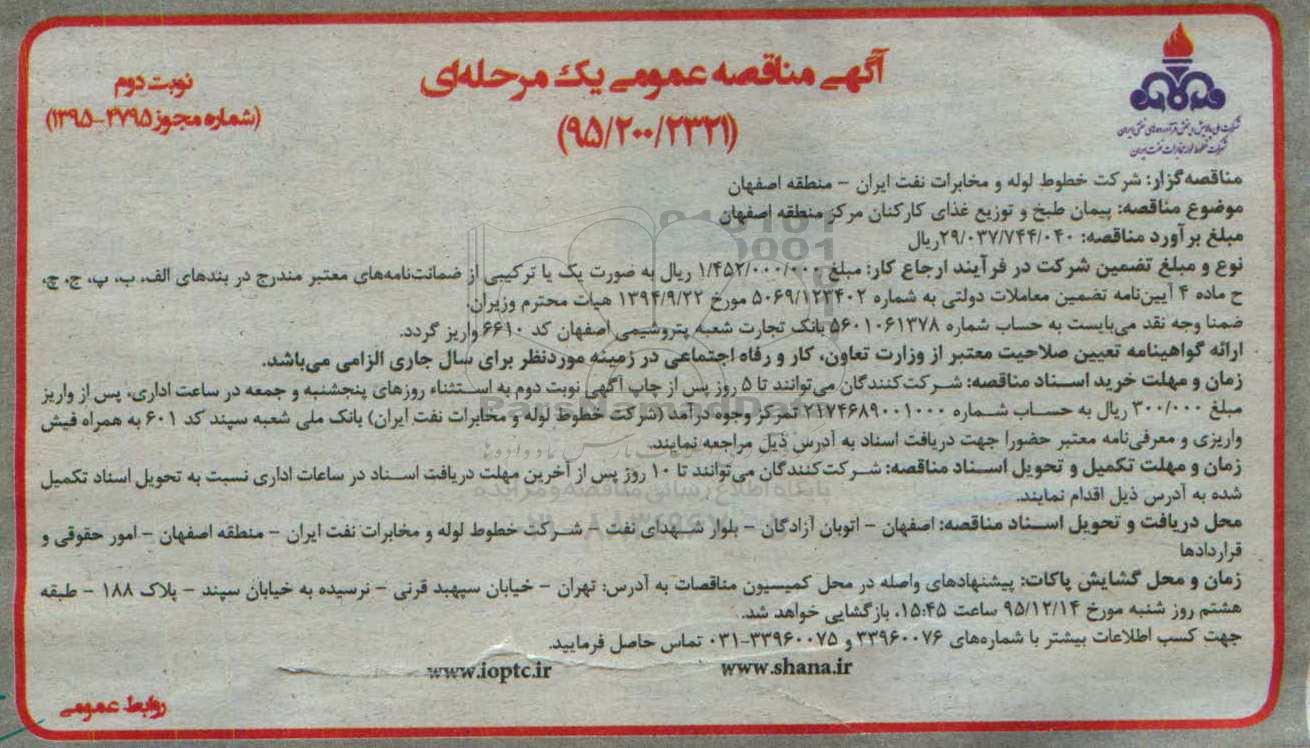 آگهی مناقصه عمومی یک مرحله‌ای
(۹۵/۲۰۰/۲۳۲۱)
نوبت دوم
(شماره مجوز ۴۷۹۵-۱۳۹۵)
شرکت ملی پالایش و پخش فرآورده‌های نفتی ایران
شرکت خطوط لوله و مخابرات نفت ایران
مناقصه‌گزار: شرکت خطوط لوله و مخابرات نفت ایران – منطقه اصفهان
موضوع مناقصه: پیمان طبخ و توزیع غذای کارکنان مرکز منطقه اصفهان
مبلغ برآورد مناقصه: ۲۹/۰۳۷/۷۴۴/۰۴۰ریال
نوع و مبلغ تضمین شرکت در فرآیند ارجاع کار: مبلغ ۱/۴۵۲/۰۰۰/۰۰۰ ریال به صورت یک یا ترکیبی از ضمانت‌نامه‌های معتبر مندرج در بندهای الف، ب، پ، ج، چ،
ح ماده ۴ آیین‌نامه تضمین معاملات دولتی به شماره ۵۰۶۹/۱۲۳۴۰۲ مورخ ۱۳۹۴/۹/۲۲ هیات محترم وزیران.
ضمنا وجه نقد می‌بایست به حساب شماره ۵۶۰۱۰۶۱۳۷۸ بانک تجارت شعبه پتروشیمی اصفهان کد ۶۶۱۰ واریز گردد.
ارائه گواهینامه تعیین صلاحیت معتبر از وزارت تعاون، کار و رفاه اجتماعی در زمینه موردنظر برای سال جاری الزامی می‌باشد.
زمان و مهلت خرید اسناد مناقصه: شرکت‌کنندگان می‌توانند تا ۵ روز پس از چاپ آگهی نوبت دوم به استثناء روزهای پنجشنبه و جمعه در ساعت اداری، پس از واریز
مبلغ ۳۰۰/۰۰۰ ریال به حساب شماره ۲۱۷۴۶۸۹۰۰۱۰۰۰ تمرکز وجوه درآمد (شرکت خطوط لوله و مخابرات نفت ایران) بانک ملی شعبه سپند کد ۶۰۱ به همراه فیش
واریزی و معرفی‌نامه معتبر حضورا جهت دریافت اسناد به آدرس ذیل مراجعه نمایند.
زمان و مهلت تکمیل و تحویل اسناد مناقصه: شرکت‌کنندگان می‌توانند تا ۱۰ روز پس از آخرین مهلت دریافت اسناد در ساعات اداری نسبت به تحویل اسناد تکمیل
شده به آدرس ذیل اقدام نمایند.
محل دریافت و تحویل اسناد مناقصه: اصفهان – اتوبان آزادگان – بلوار شهدای نفت – شرکت خطوط لوله و مخابرات نفت ایران – منطقه اصفهان – امور حقوقی و
قراردادها
زمان و محل گشایش پاکات: پیشنهادهای واصله در محل کمیسیون مناقصات به آدرس: تهران – خیابان سپهبد قرنی – نرسیده به خیابان سپند – پلاک ۱۸۸ – طبقه
هشتم روز شنبه مورخ ۹۵/۱۲/۱۴ ساعت ۱۵:۴۵، بازگشایی خواهد شد.
جهت کسب اطلاعات بیشتر با شماره‌های ۳۳۹۶۰۰۷۶ و ۳۳۹۶۰۰۷۵-۰۳۱ تماس حاصل فرمایید.
www.shana.ir
www.ioptc.ir
روابط عمومی